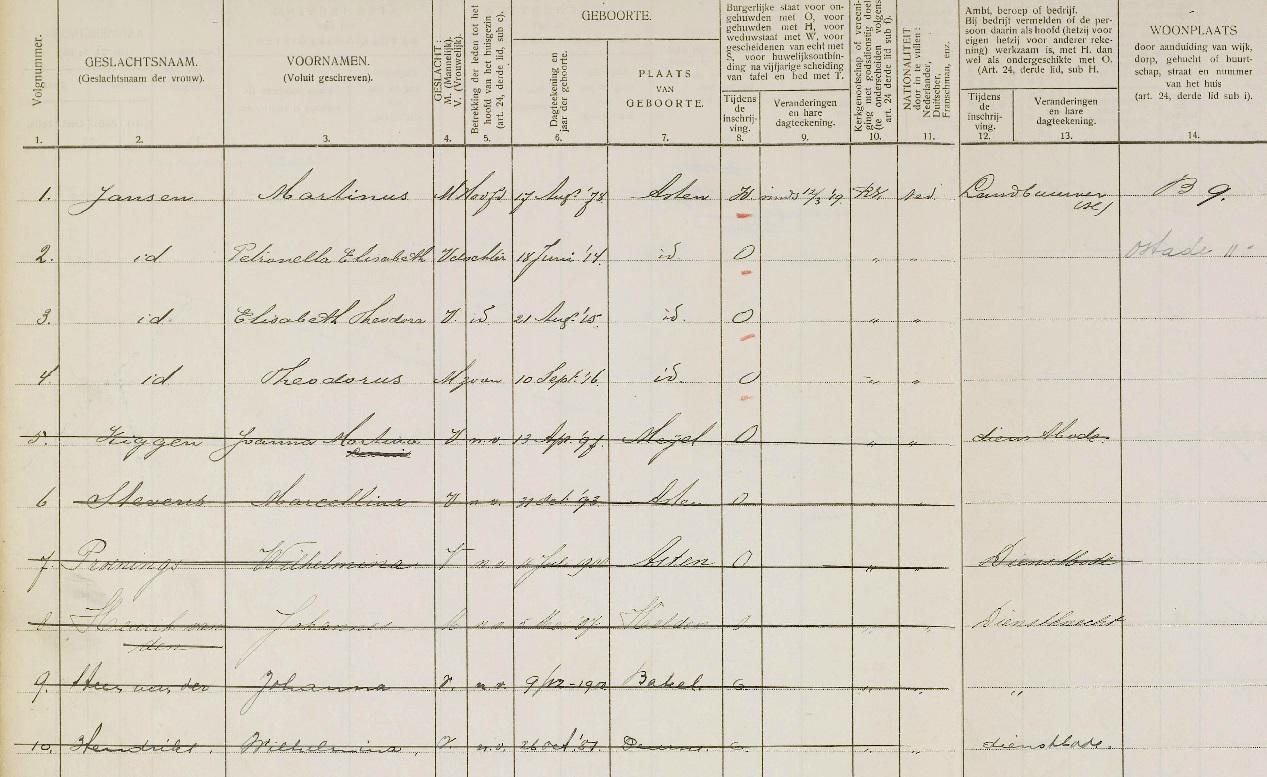 Volgnummer.
GESLACHTSNAAM.
(Geslachtsnaam der vrouw).
VOORNAMEN.
(Voluit geschreven).
GESLACHT:
M. (Mannelijk).
V. (Vrouwelijk).
Betrekking der leden tot het
hoofd van het huisgezin
(art. 24, derde lid, sub c).
GEBOORTE.
Dagteekening en
jaar der geboorte.
PLAATS
VAN
GEBOORTE.
Burgerlijke staat voor on-
gehuwden met O, voor
gehuwden met H, voor
weduwstaat met W, voor
gescheidenen van echt met
S, voor huwelijksontbin-
ding na vijfjarige scheiding
van tafel en bed met T.
Tijdens
de
inschrij-
ving.
Veranderingen
en hare
dagteekening.
Kerkgenootschap of vereeni-
ging met godsdienstig doel
(te onderscheiden volgens
art. 24, derde lid, sub f).
NATIONALITEIT
door in te vullen:
Nederlander,
Duitscher,
Franschman, enz.
Ambt, beroep of bedrijf.
Bij bedrijf vermelden of de per-
soon daarin als hoofd (hetzij voor
eigen hetzij voor anderer reke-
ning) werkzaam is, met H. dan
wel als ondergeschikte met O.
(Art. 24, derde lid, sub H.
Tijdens
de
inschrij-
ving.
Veranderingen
en hare
dagteekening.
WOONPLAATS
door aanduiding van wijk,
dorp, gehucht of buurt-
schap, straat en nummer
van het huis
(art. 24, derde lid sub i).
1. 2. 3. 4. 5. 6. 7. 8. 9. 10. 11. 12. 13. 14.
1. Jansen Martinus M Hoofd 17 Aug. '78 Asten Ned. Landbouwer B 9.
2. id Petronella Elisabeth V dochter 18 Juni '14 id O " " Ostade 11
3. id. Elisabeth Theodora V. id 21 Aug. '15 id. O " "
4 id Theodorus M zoon 10 Sept. '16 id. O " "
5. Kiggen Joanna Martina V n.v. 13 Apr. Meijel O " " dienstbode
6 Stevens Marcellina V n.v. Asten O " "
7. Wilhelmina V n.v. Asten O " " Dienstbode
8 Johannes M n.v. Helden " " Dienstknecht
9. van der Johanna V. n.v. Bakel. " " "
10. Hendriks. Wilhelmina, V. n.v. 26 Oct. Deurne. " " dienstbode.